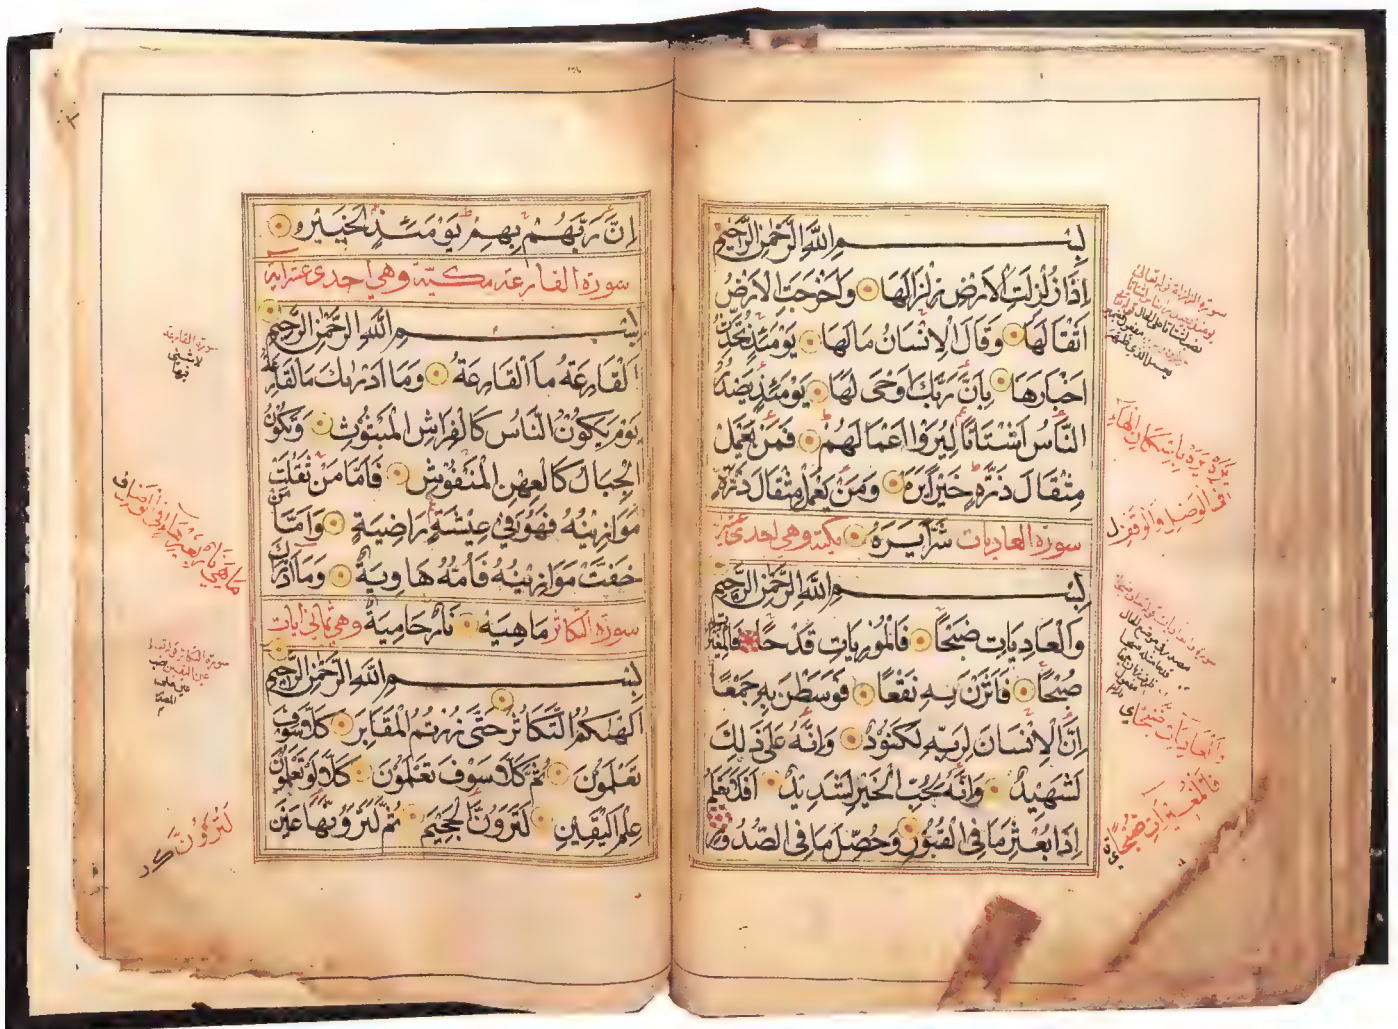 بِسْمِ اللّٰهِ الرَّحْمٰنِ الرَّحِيْمِ
اِذَا زُلْزِلَتِ الْاَرْضُ زِلْزَالَهَا وَاَخْرَجَتِ الْاَرْضُ
اَثْقَالَهَا وَقَالَ الْاِنْسَانُ مَالَهَا يَوْمَئِذٍ تُحَدِّثُ
اَخْبَارَهَا بِاَنَّ رَبَّكَ اَوْحٰى لَهَا يَوْمَئِذٍ يَصْدُرُ
النَّاسُ اَشْتَاتًا لِيُرَوْا اَعْمَالَهُمْ فَمَنْ يَعْمَلْ
مِثْقَالَ ذَرَّةٍ خَيْرًا يَرَهُ وَمَنْ يَعْمَلْ مِثْقَالَ ذَرَّةٍ
سورة العاديات شَرًّا يَرَهُ مكية وهي احدى عشر
بِسْمِ اللّٰهِ الرَّحْمٰنِ الرَّحِيْمِ
وَالْعَادِيَاتِ ضَبْحًا فَالْمُوْرِيَاتِ قَدْحًا فَالْمُغِيْرَ
صُبْحًا فَاَثَرْنَ بِهٖ نَقْعًا فَوَسَطْنَ بِهٖ جَمْعًا
اِنَّ الْاِنْسَانَ لِرَبِّهٖ لَكَنُوْدٌ وَاِنَّهُ عَلٰى ذٰلِكَ
لَشَهِيْدٌ وَاِنَّهُ لِحُبِّ الْخَيْرِ لَشَدِيْدٌ اَفَلَا يَعْلَمُ
اِذَا بُعْثِرَ مَا فِى الْقُبُوْرِ وَحُصِّلَ مَا فِى الصُّدُوْرِ
اِنَّ رَبَّهُمْ بِهِمْ يَوْمَئِذٍ لَخَبِيْرٌ
سورة القارعة مكية وهي احدى عشر اية
بِسْمِ اللّٰهِ الرَّحْمٰنِ الرَّحِيْمِ
اَلْقَارِعَةُ مَا الْقَارِعَةُ وَمَا اَدْرٰىكَ مَا الْقَارِعَةُ
يَوْمَ يَكُوْنُ النَّاسُ كَالْفَرَاشِ الْمَبْثُوْثِ وَتَكُوْنُ
الْجِبَالُ كَالْعِهْنِ الْمَنْفُوْشِ فَاَمَّا مَنْ ثَقُلَتْ
مَوَازِيْنُهُ فَهُوَ فِيْ عِيْشَةٍ رَاضِيَةٍ وَاَمَّا مَنْ
خَفَّتْ مَوَازِيْنُهُ فَاُمُّهُ هَاوِيَةٌ وَمَا اَدْرٰىكَ
سورة التكاثر مَاهِيَهْ نَارٌ حَامِيَةٌ وهي ثماني ايات
بِسْمِ اللّٰهِ الرَّحْمٰنِ الرَّحِيْمِ
اَلْهٰىكُمُ التَّكَاثُرُ حَتّٰى زُرْتُمُ الْمَقَابِرَ كَلَّا سَوْفَ
تَعْلَمُوْنَ ثُمَّ كَلَّا سَوْفَ تَعْلَمُوْنَ كَلَّا لَوْ تَعْلَمُوْنَ
عِلْمَ الْيَقِيْنِ لَتَرَوُنَّ الْجَحِيْمَ ثُمَّ لَتَرَوُنَّهَا عَيْنَ